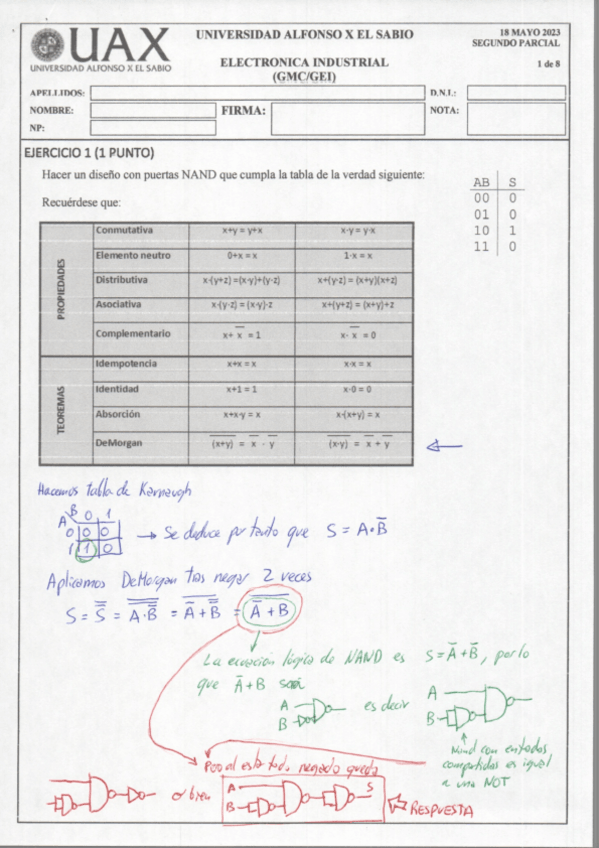 UAX
UNIVERSIDAD ALFONSO X EL SABIO
UNIVERSIDAD ALFONSO X EL SABIO
ELECTRONICA INDUSTRIAL
(GMC/GEI)
18 MAYO 2023
SEGUNDO PARCIAL
1 de 8
APELLIDOS:
D.N.I.:
NOMBRE:
FIRMA:
NOTA:
NP:
EJERCICIO 1 (1 PUNTO)
Hacer un diseño con puertas NAND que cumpla la tabla de la verdad siguiente:
AB S
00 0
01 0
10 1
11 0
Recuérdese que:
PROPIEDADES
Conmutativa x+y = y+x x·y = y·x
Elemento neutro 0+x = x 1·x = x
Distributiva x·(y+z) =(x·y)+(y·z) x+(y·z) = (x+y)(x+z)
Asociativa x·(y·z) = (x·y)·z x+(y+z) = (x+y)+z
Complementario x+ x̅ = 1 x· x̅ = 0
TEOREMAS
Idempotencia x+x = x x·x = x
Identidad x+1 = 1 x·0 = 0
Absorción x+x·y = x x·(x+y) = x
DeMorgan \overline{(x+y)} = x̅ · y̅ \overline{(x·y)} = x̅ + y̅
Hacemos tabla de Karnaugh
B 0 1
A
0 0 0
1 1 0
→ Se deduce por tanto que S = A·B̅
Aplicamos DeMorgan tras negar 2 veces
S = \overline{\overline{S}} = \overline{\overline{A·\overline{B}}} = \overline{\overline{A}+\overline{\overline{B}}} = \overline{\overline{A}+B}
La ecuación lógica de NAND es S = A̅ + B̅, por lo
que A̅ + B será
A
B
es decir
A
B
Nand con entradas
compartidas es igual
a una NOT
Pero al estar todo negado queda
o bien
A
B
S
RESPUESTA